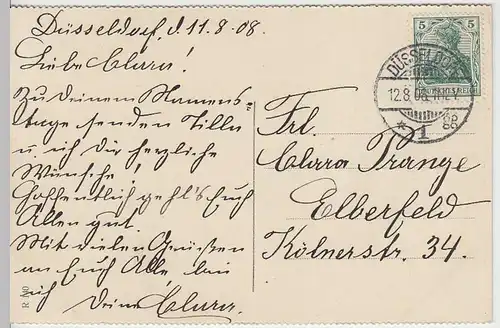 Düsseldorf, d. 11.8.08.
Liebe Clara!
Zu Deinem Namens-
tage senden Tilla
u. ich Dir herzliche
Wünsche!
Hoffentlich geht's Euch
Allen gut.
Mit vielen Grüßen
an Euch Alle, bin
ich
Deine Clara.
Frl.
Clara Prange
Elberfeld
Kölnerstr. 34.
5 5
DEUTSCHES REICH
DÜSSELDORF
12.8.08.
* 1 gg
R